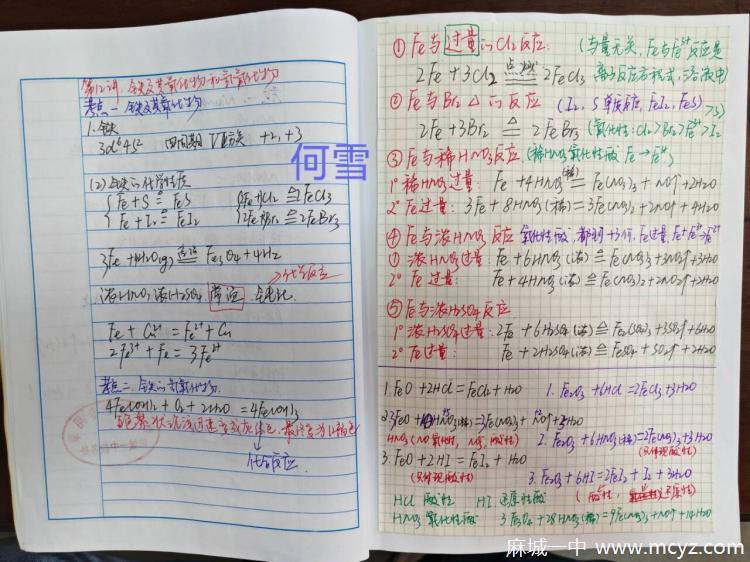 第12讲 铁及其氧化物和氢氧化物
考点一 铁及其氧化物
1.铁
3d⁶4S² 四周期 Ⅷ族 +2,+3
何雪
(2)铁的化学性质
Fe+S ≜ FeS
2Fe+3Cl₂ 点燃 2FeCl₃
Fe+I₂ ≜ FeI₂
2Fe+3Br₂ ≜ 2FeBr₃
3Fe+4H₂O(g) 高温 Fe₃O₄+4H₂
浓HNO₃ 浓H₂SO₄ 常温 钝化
化学反应
Fe+Cu²⁺=Fe²⁺+Cu
2Fe³⁺+Fe=3Fe²⁺
考点二 铁的氢氧化物
4Fe(OH)₂+O₂+2H₂O=4Fe(OH)₃
白色絮状沉淀迅速变成灰绿色,最终变为红褐色
化合反应
①Fe与过量的Cl₂反应: (与量无关,Fe与Fe³⁺反应是
2Fe+3Cl₂ 点燃 2FeCl₃ 离子反应方程式,溶液中)
②Fe与Br₂ △的反应 (I₂,S单质反应,FeI₂,FeS)
2Fe+3Br₂ ≜ 2FeBr₃ (氧化性:Cl₂>Br₂>Fe³⁺>I₂>S)
③Fe与稀HNO₃反应(稀HNO₃氧化性酸 Fe→Fe³⁺)
1°稀HNO₃过量: Fe+4HNO₃(稀)=Fe(NO₃)₃+NO↑+2H₂O
2°Fe过量: 3Fe+8HNO₃(稀)=3Fe(NO₃)₂+2NO↑+4H₂O
④Fe与浓HNO₃反应 氧化性酸,都到+3价,Fe过量,Fe+Fe³⁺→Fe²⁺
①浓HNO₃过量:Fe+6HNO₃(浓)≜Fe(NO₃)₃+3NO₂↑+3H₂O
2°Fe过量: Fe+4HNO₃(浓)≜Fe(NO₃)₂+2NO₂↑+2H₂O
⑤Fe与浓H₂SO₄反应
1°浓H₂SO₄过量:2Fe+6H₂SO₄(浓)≜Fe₂(SO₄)₃+3SO₂↑+6H₂O
2°Fe过量: Fe+2H₂SO₄(浓)≜FeSO₄+SO₂↑+2H₂O
1.FeO+2HCl=FeCl₂+H₂O
1.Fe₂O₃+6HCl=2FeCl₃+3H₂O
2.3FeO+10HNO₃(稀)=3Fe(NO₃)₃+NO↑+5H₂O
HNO₃(NO氧化性,NO₃⁻酸性)
2.Fe₂O₃+6HNO₃(稀)=2Fe(NO₃)₃+3H₂O
(只体现酸性)
3.FeO+2HI=FeI₂+H₂O
(只体现酸性)
3.Fe₂O₃+6HI=2FeI₂+I₂+3H₂O
(酸性,还原性)
HCl 酸性 HI 还原性酸
HNO₃ 氧化性酸 3Fe₃O₄+28HNO₃(稀)=9Fe(NO₃)₃+NO↑+14H₂O
麻城一中 www.mcyz.com